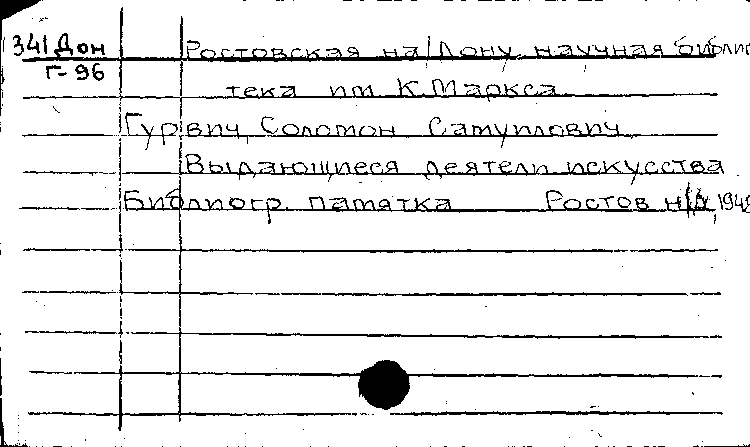 341 Дон Ростовская на/Дону научная библио
Г-96
тека им. К.Маркса
Гурвич, Соломон Самуилович
Выдающиеся деятели искусства
Библиогр. памятка Ростов н/Д, 1949